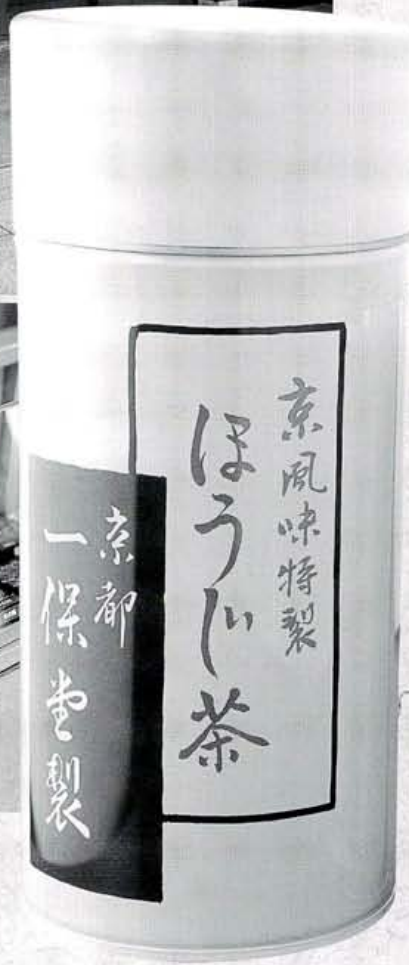 京風味特製
ほうじ茶
京都
一保堂製